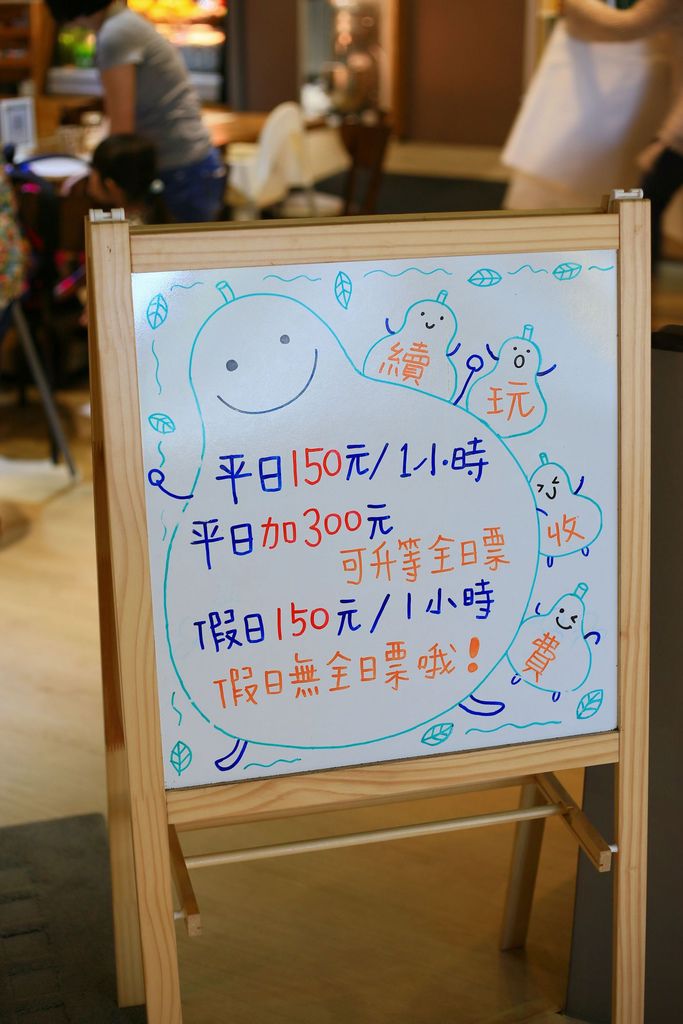 續玩收費
平日150元/1小時
平日加300元
可升等全日票
假日150元/1小時
假日無全日票哦!